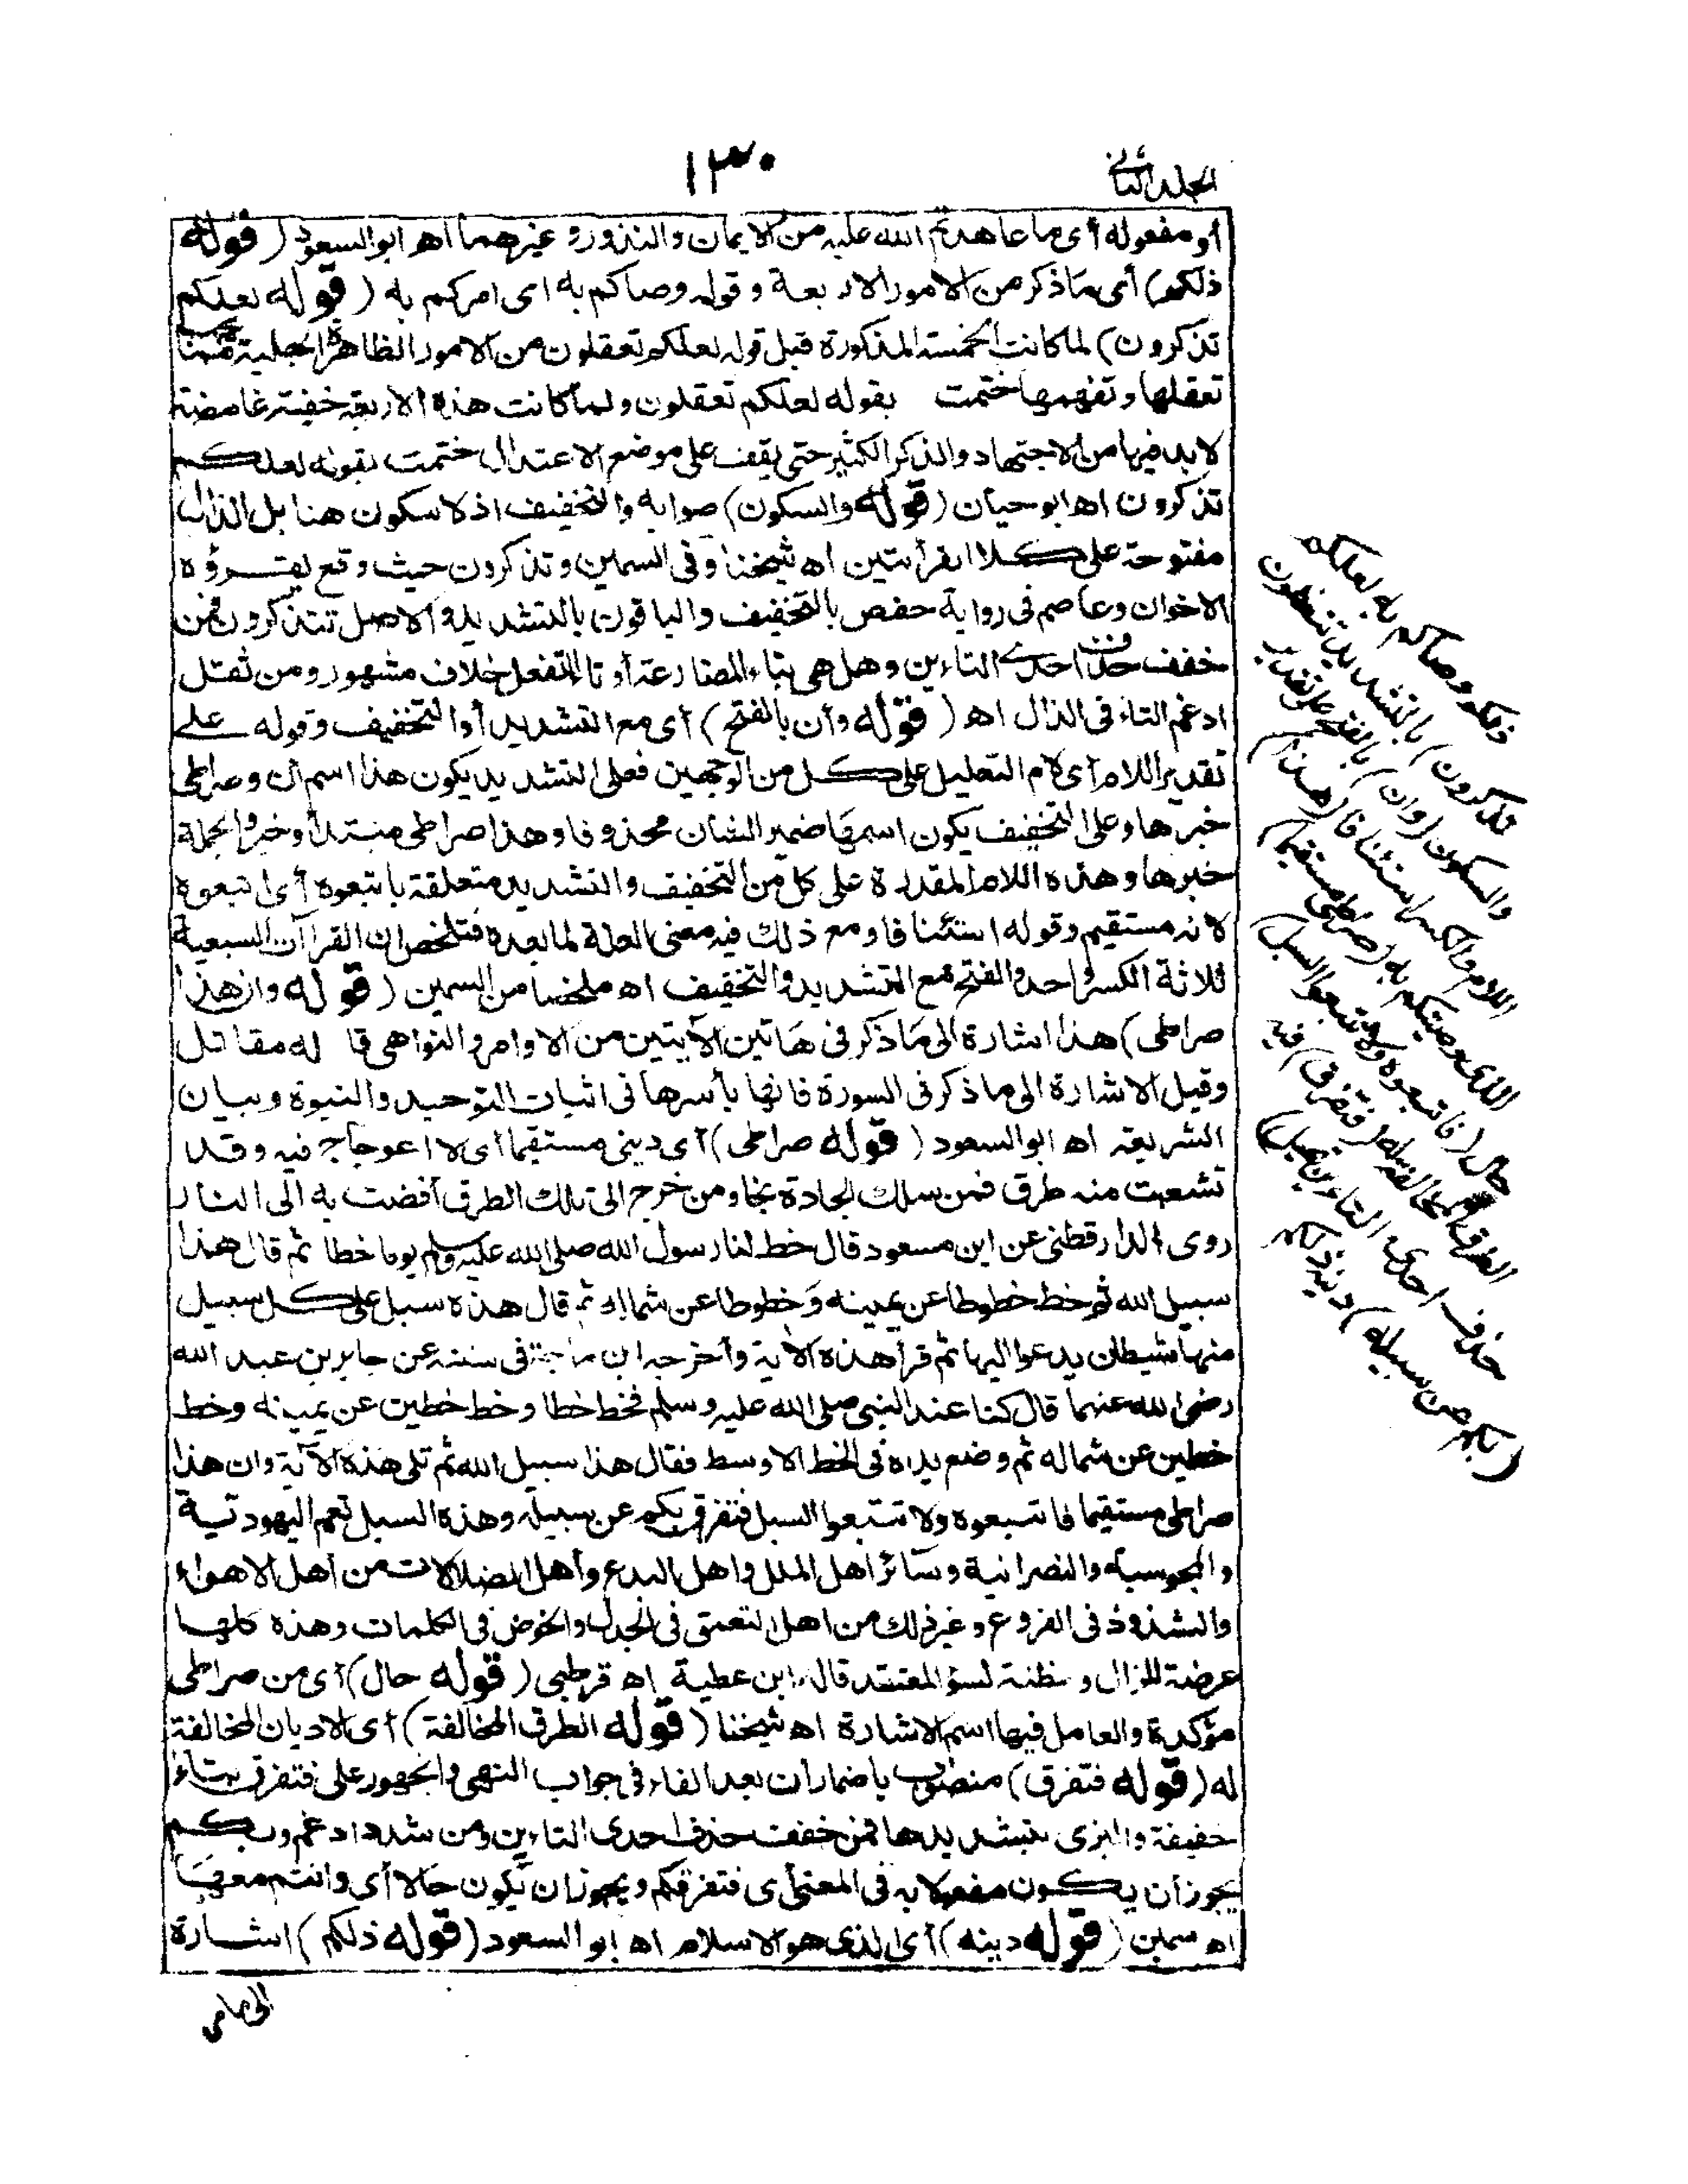 الجلد الثانى
١٣٠
أو مفعوله أى ما عاهدتم الله عليه من الايمان والنذور وغيرهما اه ابو السعود ( قوله
ذلكم) أى ما ذكر من الامور الاربعة وقوله وصاكم به اى امركم به ( قوله لعلكم
تذكرون) لما كانت الخمسة المذكورة قبل قوله لعلكم تعقلون من الامور الظاهرة الجلية
تعقلها وتفهمها ختمت بقوله لعلكم تعقلون ولما كانت هذه الاربعة خفية غامضة
لا بد فيها من الاجتهاد والذكر الكثير حتى يقف على موضع الاعتدال ختمت بقوله لعلكم
تذكرون اه ابو حيان (قوله والسكون) صوابه والتخفيف اذ لا سكون هنا بل الذال
مفتوحة على كلا القرأتين اه شيخنا وفى السمين وتذكرون حيث وقع يقرؤه
الاخوان وعاصم فى رواية حفص بالتخفيف والباقون بالتشديد والاصل تتذكرون فمن
خفف حذف احدى التاءين وهل هى تاء المضارعة أو تا التفعل خلاف مشهور ومن ثقل
ادغم التاء فى الذال اه ( قوله وأن بالفتح ) أى مع التشديد أو التخفيف وقوله على
تقدير اللام أى لام التعليل على كل من الوجهين فعلى التشديد يكون هذا اسم ان وصراطى
خبرها وعلى التخفيف يكون اسمها ضمير الشان محذوفا وهذا صراطى مبتدأ وخبر والجملة
خبرها وهذه اللام المقدرة على كل من التخفيف والتشديد متعلقة باتبعوه أى اتبعوه
لانه مستقيم وقوله استئنافا ومع ذلك فيه معنى العلة لما بعده فتلخص ان القراآت السبعية
ثلاثة الكسر واحد والفتح مع التشديد والتخفيف اه ملخصا من السمين ( قوله وان هذا
صراطى) هذا اشارة الى ما ذكر فى هاتين الآيتين من الاوامر والنواهى قا له مقاتل
وقيل الاشارة الى ما ذكر فى السورة فانها بأسرها فى اثبات التوحيد والنبوة وبيان
الشريعة اه ابو السعود ( قوله صراطى) أى دينى مستقيما اى لا اعوجاج فيه وقد
تشعبت منه طرق فمن سلك الجادة نجا ومن خرج الى تلك الطرق أفضت به الى النار
روى الدارقطنى عن ابن مسعود قال خط لنا رسول الله صلى الله عليه وسلم يوما خطا ثم قال هذا
سبيل الله ثم خط خطوطا عن يمينه وخطوطا عن شماله ثم قال هذه سبل على كل سبيل
منها شيطان يدعوا اليها ثم قرأ هذه الآية وأخرجه ابن ماجة فى سننه عن جابر بن عبد الله
رضى الله عنهما قال كنا عند النبى صلى الله عليه وسلم فخط خطا وخط خطين عن يمينه وخط
خطين عن شماله ثم وضع يده فى الخط الاوسط فقال هذا سبيل الله ثم تلى هذه الآية وان هذا
صراطى مستقيما فاتبعوه ولا تتبعوا السبل فتفرق بكم عن سبيله وهذه السبل تعم اليهودية
والمجوسية والنصرانية وسائر اهل الملل واهل البدع وأهل الضلالات من أهل الاهواء
والشذوذ فى الفروع وغير ذلك من اهل التعمق فى الجدل والخوض فى الكلمات وهذه كلها
عرضة للزال ومظنة لسؤ المعتقد قاله ابن عطية اه قرطبى ( قوله حال) أى من صراطى
مؤكدة والعامل فيها اسم الاشارة اه شيخنا ( قوله الطرق المخالفة ) أى الاديان المخالفة
له ( قوله فتفرق) منصوب باضمار ان بعد الفاء فى جواب النهى والجمهور على فتفرق بتاء
خفيفة والبزى بتشديدها فمن خفف حذف احدى التاءين ومن شدد ادغم وبكم
يجوز أن يكون مفعولا به فى المعنى أى فتفرقكم ويجوز ان يكون حالا أى وانتم معها
اه سمين ( قوله دينه ) أى الذى هو الاسلام اه ابو السعود ( قوله ذلكم ) اشارة
ذلكم وصاكم به لعلكم
تذكرون) بالتشديد تتعظون
والسكون (وان) بالفتح على تقدير
اللام والكسر استئنافا (هذا)
الذى وصيتكم به (صراطى مستقيما)
حال (فاتبعوه ولا تتبعوا السبل)
الطرق المخالفة له (فتفرق) فيه
حذف احدى التاءين تميل)
(بكم عن سبيله) دينه ذلكم